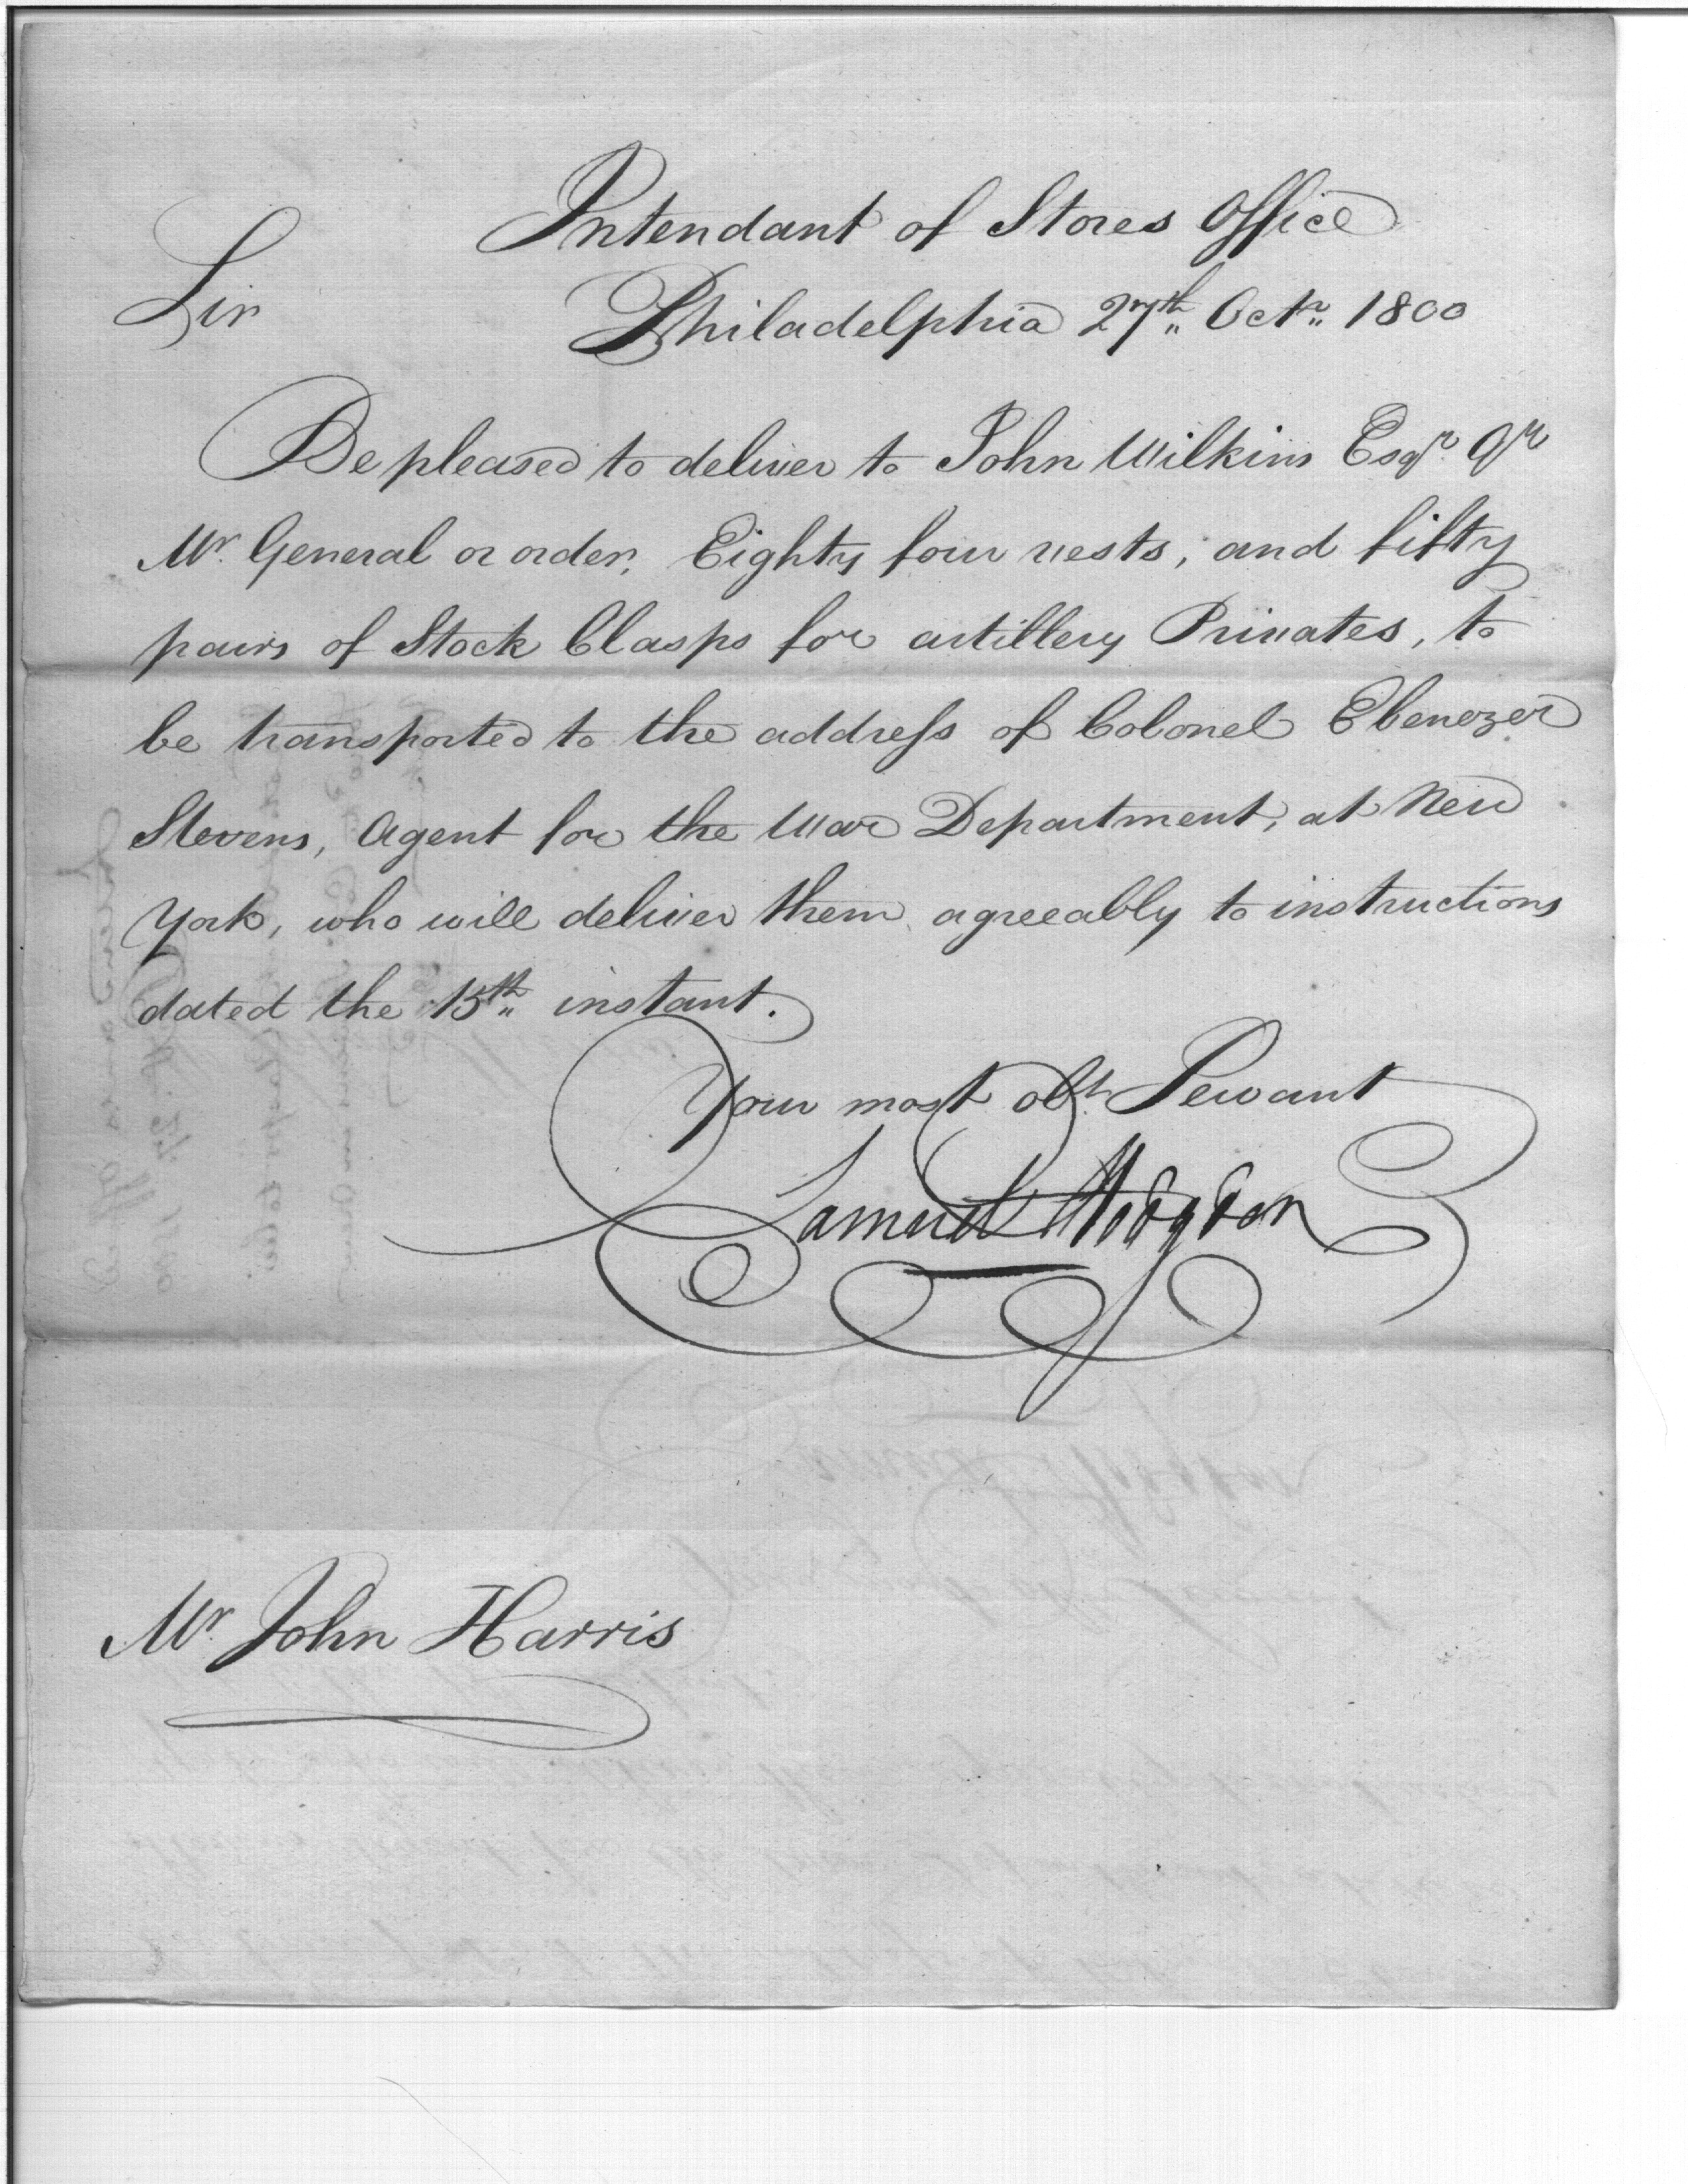 Intendant of Stores Office
Sir
Philadelphia 27th Octr 1800
Be pleased to deliver to John Wilkins Esqr Qr
Mr General or order, Eighty four vests, and fifty
pairs of Stock Clasps for artillery Privates, to
be transported to the address of Colonel Ebenezer
Stevens, Agent for the War Department, at New
York, who will deliver them agreeably to instructions
dated the 15th instant.
Your most obt Servant
Samuel Hodgdon
Mr John Harris